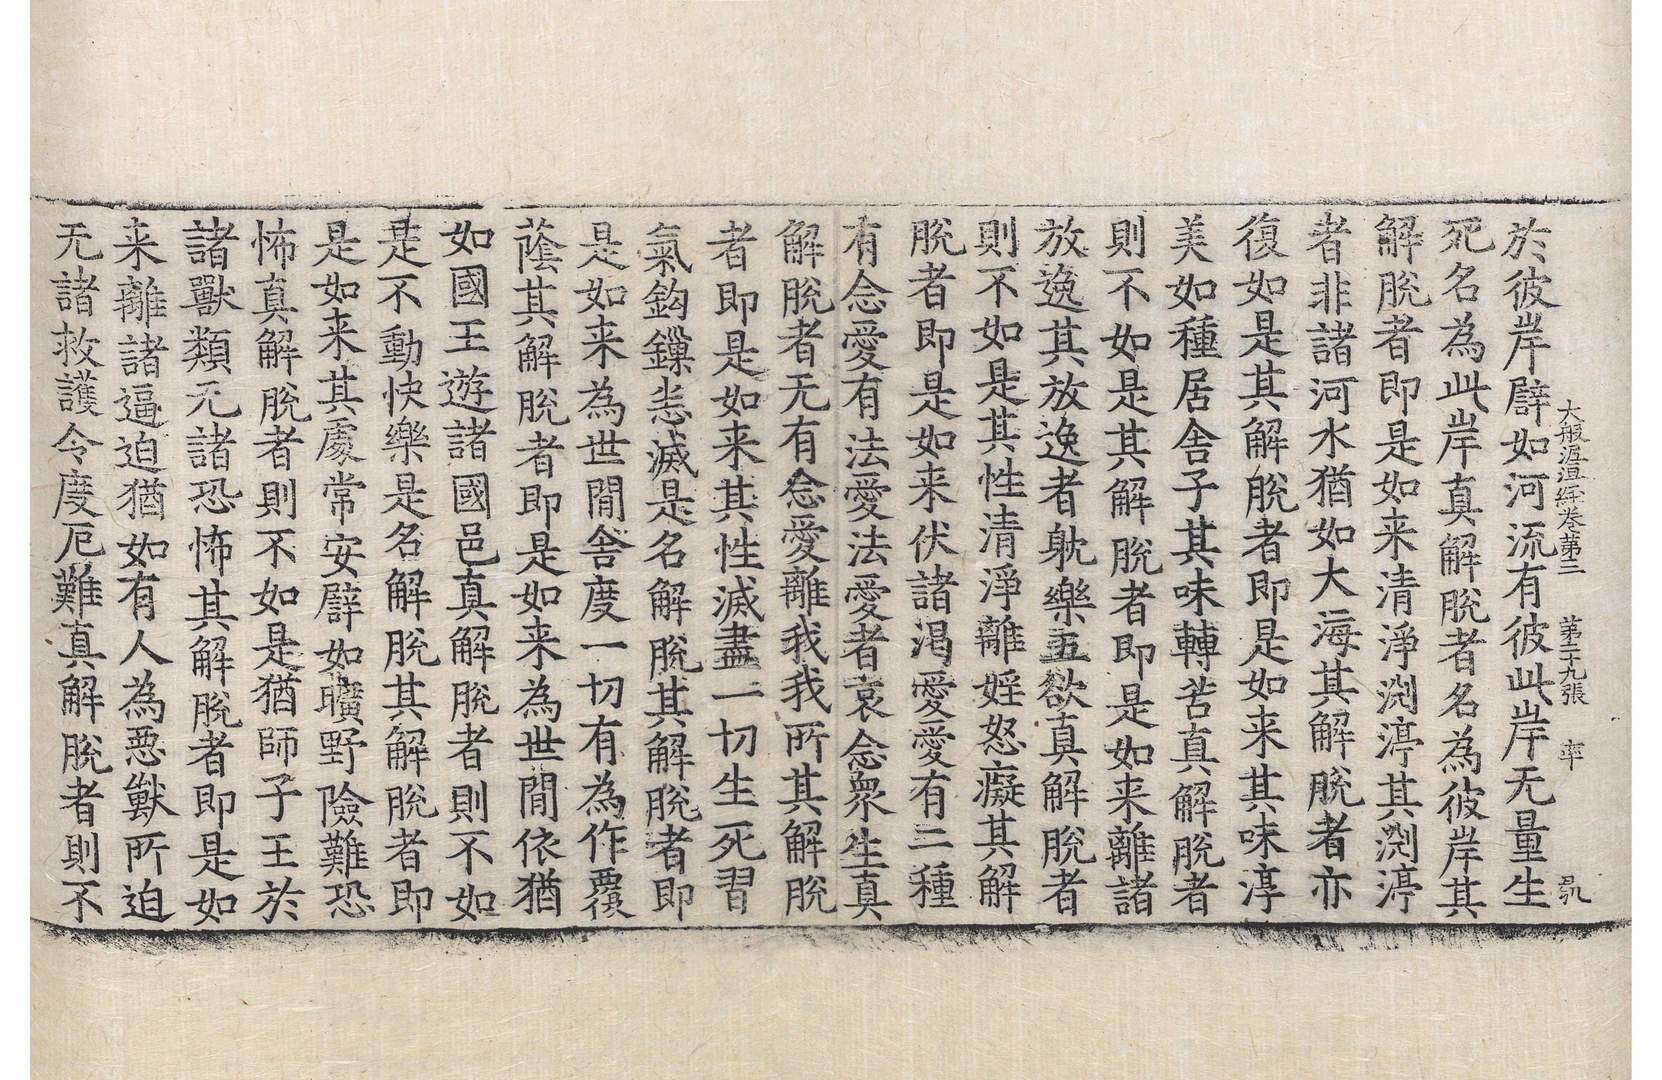 大般泥洹経巻第三 第二十九張 率
於彼岸譬如河流有彼此岸无量生
死名為此岸真解脫者名為彼岸其
解脫者即是如来清淨渕渟其渕渟
者非諸河水猶如大海其解脫者亦
復如是其解脫者即是如来其味淳
美如種居舎子其味轉苦真解脫者
則不如是其解脫者即是如来離諸
放逸其放逸者躭樂五欲真解脫者
則不如是其性清淨離婬怒癡其解
脫者即是如来伏諸渴愛愛有三種
有念愛有法愛法愛者哀念衆生真
解脫者无有念愛離我我所其解脫
者即是如来其性滅盡一切生死習
氣鈎鏁悉滅是名解脫其解脫者即
是如来為世間舎度一切有為作覆
蔭其解脫者即是如来為世間依猶
如國王遊諸國邑真解脫者則不如
是不動快樂是名解脫其解脫者即
是如来其處常安譬如曠野險難恐
怖真解脫者則不如是猶師子王於
諸獸類无諸恐怖其解脫者即是如
来離諸逼迫猶如有人為惡獸所迫
无諸救護令度厄難真解脫者則不